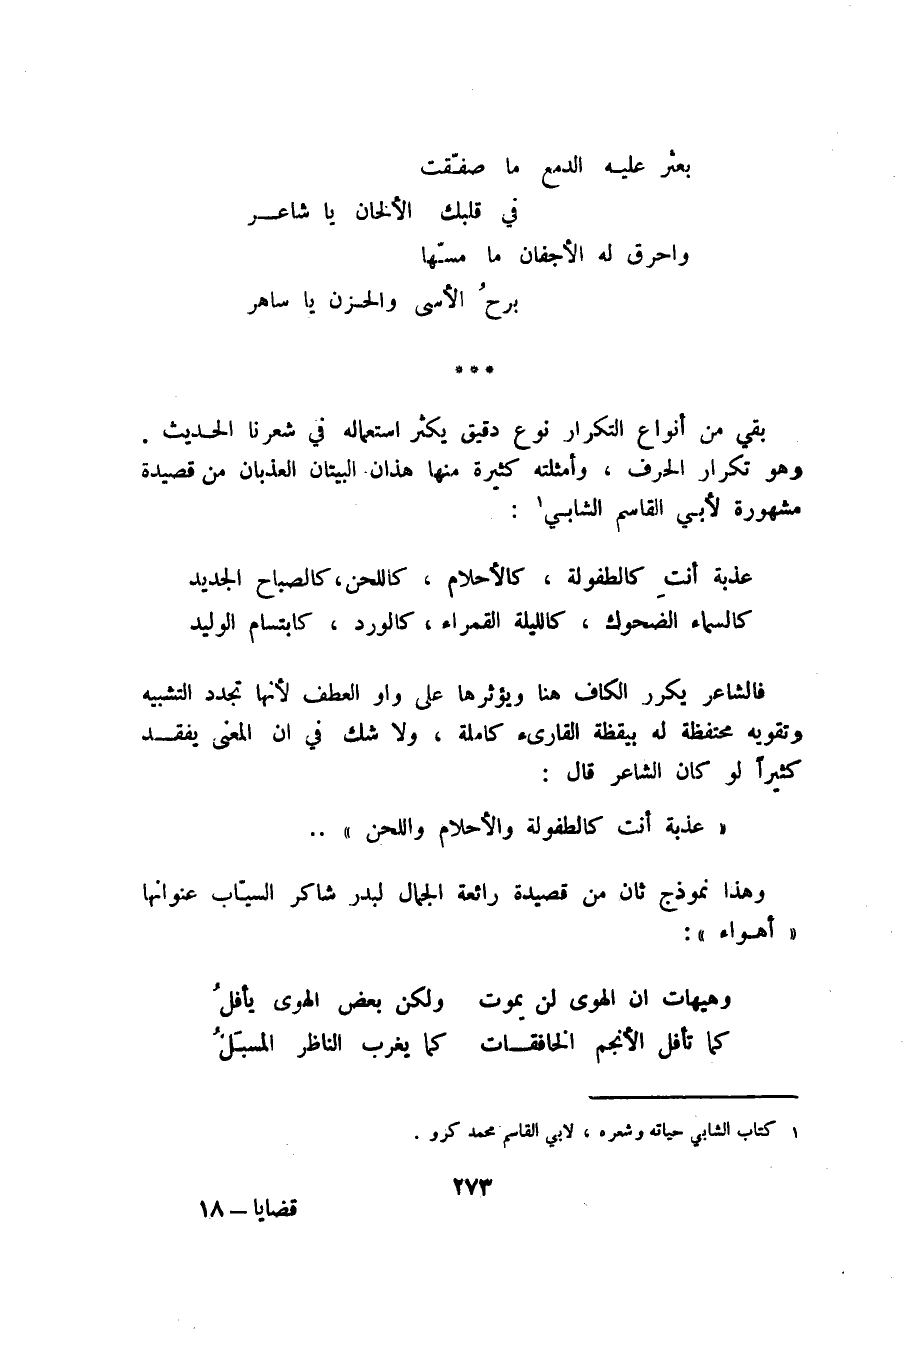 بعثر عليه الدمع ما صفّقت
في قلبك الألحان يا شاعر
واحرق له الأجفان ما مسّها
برحُ الأسى والحزن يا ساهر
***
بقي من أنواع التكرار نوع دقيق يكثر استعماله في شعرنا الحديث .
وهو تكرار الحرف ، وأمثلته كثيرة منها هذان البيتان العذبان من قصيدة
مشهورة لأبي القاسم الشابي١ :
عذبة أنتِ كالطفولة ، كالأحلام ، كاللحن، كالصباح الجديد
كالسماء الضحوك ، كالليلة القمراء ، كالورد ، كابتسام الوليد
فالشاعر يكرر الكاف هنا ويؤثرها على واو العطف لأنها تجدد التشبيه
وتقويه محتفظة له بيقظة القارىء كاملة ، ولا شك في ان المعنى يفقد
كثيراً لو كان الشاعر قال :
« عذبة أنت كالطفولة والأحلام واللحن » ..
وهذا نموذج ثان من قصيدة رائعة الجمال لبدر شاكر السيّاب عنوانها
« أهواء » :
وهيهات ان الهوى لن يموت ولكن بعض الهوى يأفلُ
كما تأفل الأنجم الخافقات كما يغرب الناظر المسبَلُ
١ كتاب الشابي حياته وشعره ، لابي القاسم محمد كرو .
٢٧٣
قضايا – ١٨